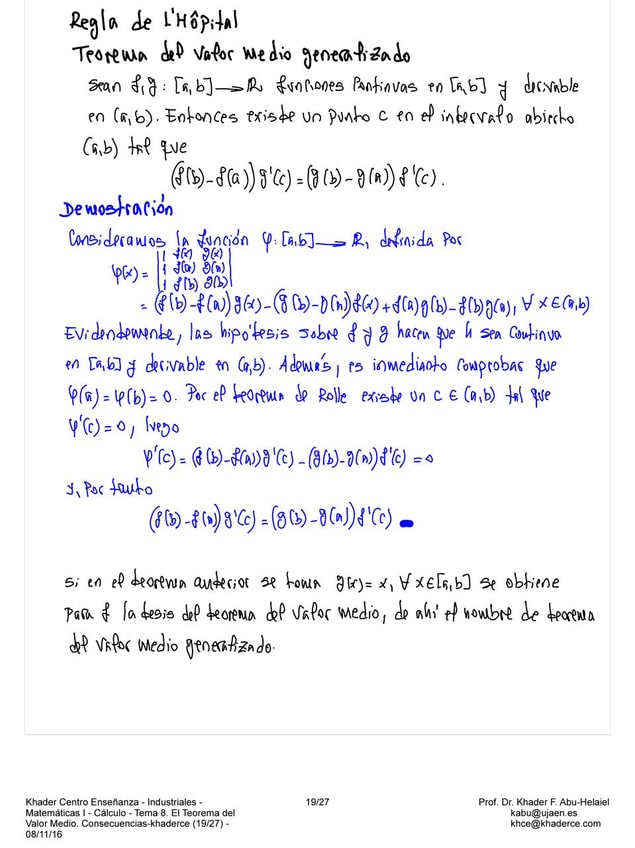 Regla de L'Hôpital
Teorema del valor medio generalizado
Sean f,g : [a,b] → ℝ funciones continuas en [a,b] y derivable
en (a,b). Entonces existe un punto c en el intervalo abierto
(a,b) tal que
(f(b)-f(a)) g'(c) = (g(b)-g(a)) f'(c).
Demostración
Consideramos la función φ: [a,b] → ℝ, definida por
|1 f(x) g(x)|
φ(x) = |1 f(a) g(a)|
|1 f(b) g(b)|
= (f(b)-f(a)) g(x) - (g(b)-g(a)) f(x) + f(a)g(b) - f(b)g(a), ∀ x ∈ (a,b)
Evidentemente, las hipótesis sobre f y g hacen que h sea continua
en [a,b] y derivable en (a,b). Además, es inmediato comprobar que
φ(a) = φ(b) = 0. Por el teorema de Rolle existe un c ∈ (a,b) tal que
φ'(c) = 0, luego
φ'(c) = (f(b)-f(a)) g'(c) - (g(b)-g(a)) f'(c) = 0
y, por tanto
(f(b)-f(a)) g'(c) = (g(b)-g(a)) f'(c)
Si en el teorema anterior se toma g(x) = x, ∀ x ∈ [a,b] se obtiene
para f la tesis del teorema del valor medio, de ahí el nombre de teorema
del valor medio generalizado.
Khader Centro Enseñanza - Industriales -
Matemáticas I - Cálculo - Tema 8. El Teorema del
Valor Medio. Consecuencias-khaderce (19/27) -
08/11/16
19/27
Prof. Dr. Khader F. Abu-Helaiel
kabu@ujaen.es
khce@khaderce.com